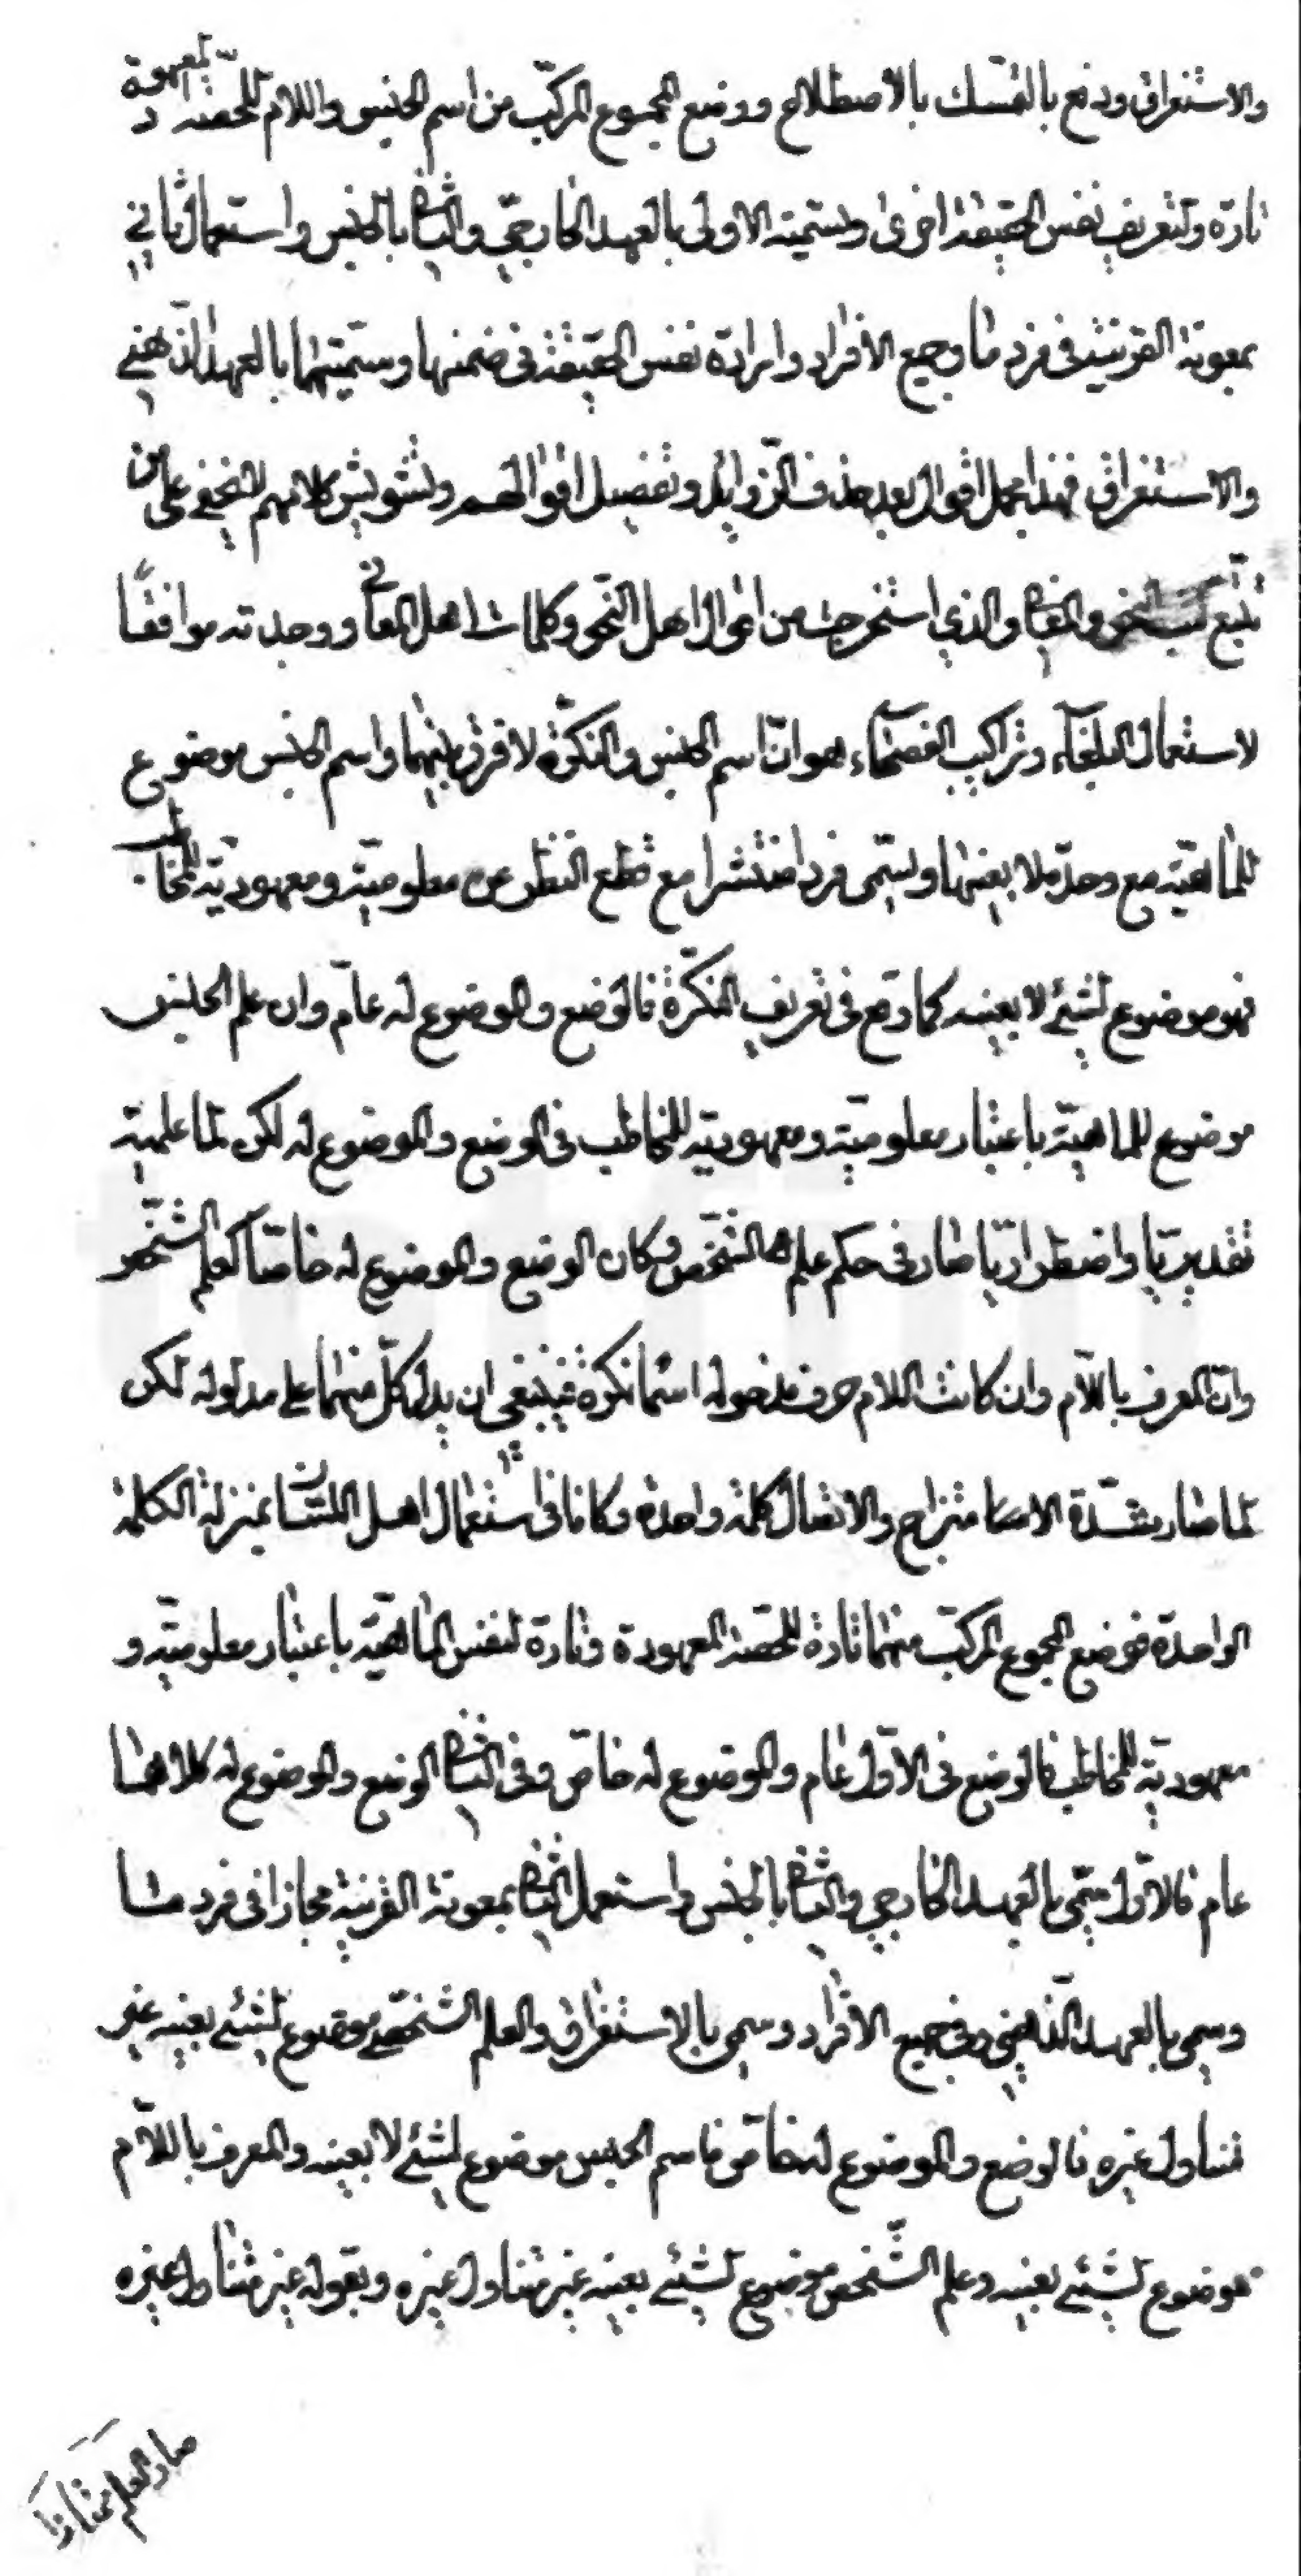 والاستغراق ودفع بالتمسك بالاصطلاح ووضع المجموع المركّب من اسم الجنس واللام للحصّة المعهودة
تارة ولتعريف نفس الحقيقة اخرى وتسمية الاولى بالعهد الخارجيّ والثاني بالجنس واستعمال ثاني
بمعونة القرينة في فرد ما وجميع الافراد وارادة نفس الحقيقة في ضمنها وتسميتهما بالعهد الذّهني
والاستغراق فهذا مجمل اقوال بعد حذف الزّوايد وتفصيل اقوالهم وتشويش كلامهم لا يخفى على من
تتبّع كتب النحو والمعاني والذي استخرجت من اقوال اهل النّحو وكلمات اهل المعاني ووجدته موافقًا
لاستعمال البلغآء وتراكيب الفصحآء هو انّ اسم الجنس والنكّرة لا فرق بينهما واسم الجنس موضوع
للماهيّة مع وحدة لا بعينها ويسمّى فردا منتشرا مع قطع النّظر عن معلوميّته ومعهوديّته للمخاطب
فهو موضوع لشيئ لا بعينه كما وقع في تعريف النّكرة فالوضع والموضوع له عامّ وان علم الجنس
موضوع للماهيّة باعتبار معلوميّته ومعهوديته للمخاطب في الوضع والموضوع له لكن لما علميّة
تقديريّا واضطراريّا صار في حكم علم الشّخص وكان الوضع والموضوع له خاصّا كعلم الشّخص
وان المعرف باللّام وان كانت اللام حرف مدخوله اسما نكرة فينبغي ان يدل كلّ منهما على مدلوله لكن
لما صار بشدّة الامتزاج والاتصال كلمة واحدة وكانا في استعمال اهل اللسان بمنزلة الكلمة
الواحدة فوضع المجموع المركّب منهما تارة للحصّة المعهودة وتارة لنفس الماهيّة باعتبار معلوميّته و
معهوديّته للمخاطب فالوضع في الاوّل عام والموضوع له خاصّ وفي الثاني الوضع والموضوع له كلاهما
عام فالاوّل سمّي بالعهد الخارجي والثاني بالجنس واستعمل الثاني بمعونة القرينة مجازا في فرد ما
وسمي بالعهد الذّهني وفي جميع الافراد وسمي بالاستغراق والعلم الشّخصي موضوع لشيئ بعينه غير
متناول غيره فالوضع والموضوع له خاصّ فاسم الجنس موضوع لشيئ لا بعينه والمعرف باللّام
موضوع لشيئ بعينه وعلم الشّخص موضوع لشيئ بعينه غير متناول غيره وبقوله غير متناول غيره
صار العلم ممتازا